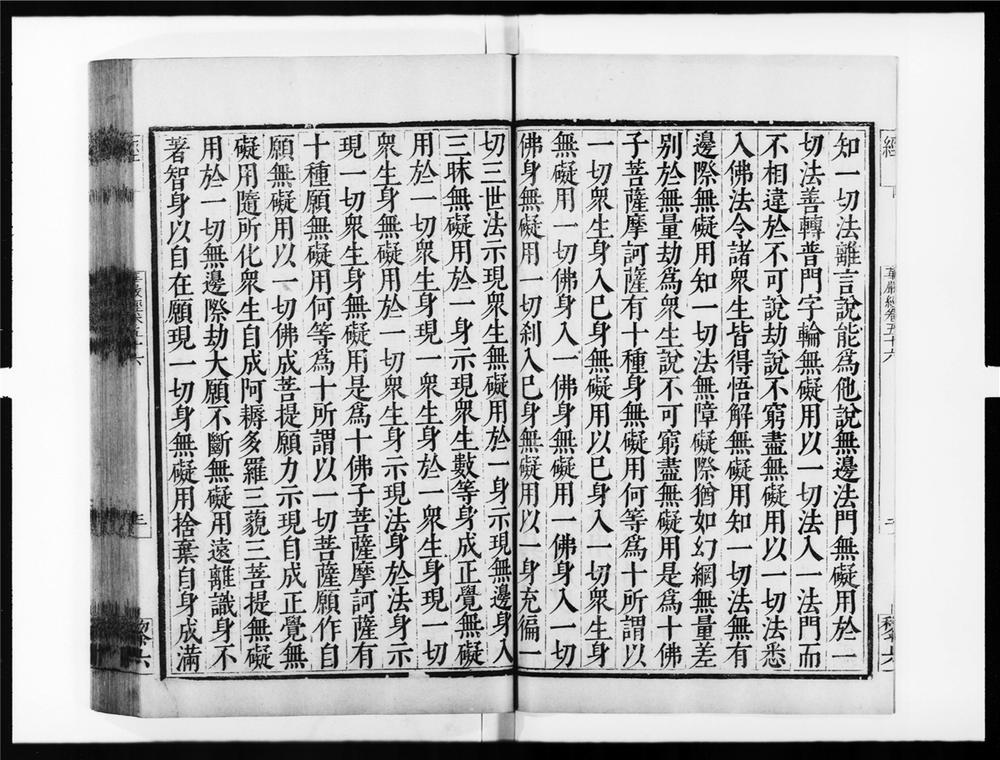 知一切法離言說能爲他說無邊法門無礙用於一
切法善轉普門字輪無礙用以一切法入一法門而
不相違於不可說劫說不窮盡無礙用以一切法悉
入佛法令諸衆生皆得悟解無礙用知一切法無有
邊際無礙用知一切法無障礙際猶如幻網無量差
别於無量劫爲衆生說不可窮盡無礙用是爲十佛
子菩薩摩訶薩有十種身無礙用何等爲十所謂以
一切衆生身入已身無礙用以已身入一切衆生身
無礙用一切佛身入一佛身無礙用一佛身入一切
佛身無礙用一切刹入已身無礙用以一身充徧一
切三世法示現衆生無礙用於一身示現無邊身入
三昧無礙用於一身示現衆生數等身成正覺無礙
用於一切衆生身現一衆生身於一衆生身現一切
衆生身無礙用於一切衆生身示現法身於法身示
現一切衆生身無礙用是爲十佛子菩薩摩訶薩有
十種願無礙用何等爲十所謂以一切菩薩願作自
願無礙用以一切佛成菩提願力示現自成正覺無
礙用隨所化衆生自成阿耨多羅三藐三菩提無礙
用於一切無邊際劫大願不斷無礙用遠離識身不
著智身以自在願現一切身無礙用捨棄自身成滿
經
華嚴經卷五十六
三
黎六